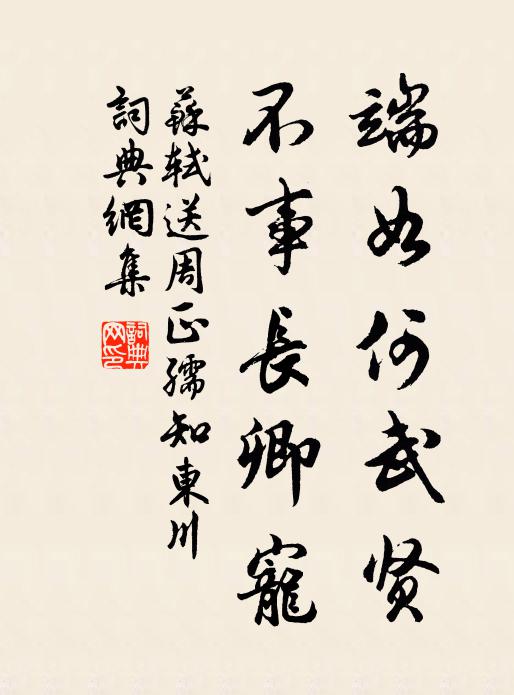 端如何武贤
不事長卿寵
蘇軾送周正孺知東川
詞典網集
詞典網印